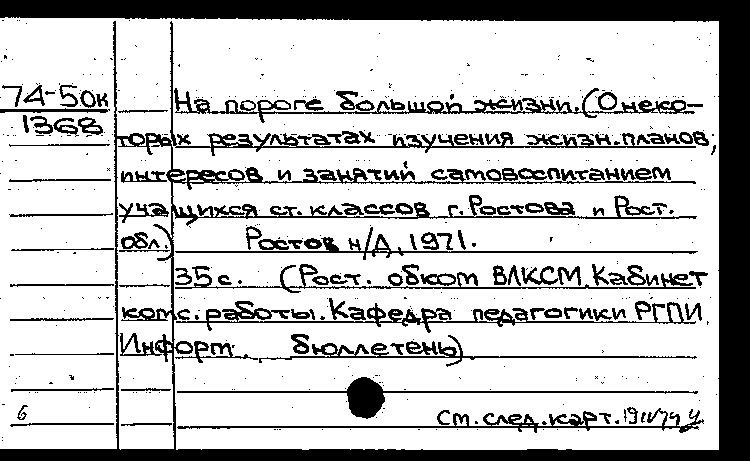 74-50к
1368
На пороге большой жизни. (О неко-
торых результатах изучения жизн. планов,
интересов и занятий самовоспитанием
учащихся ст. классов г. Ростова и Рост.
обл.) Ростов н/Д, 1971.
35 с. (Рост. обком ВЛКСМ. Кабинет
комс. работы. Кафедра педагогики РГПИ.
Информ. бюллетень)
6
См. след. карт.